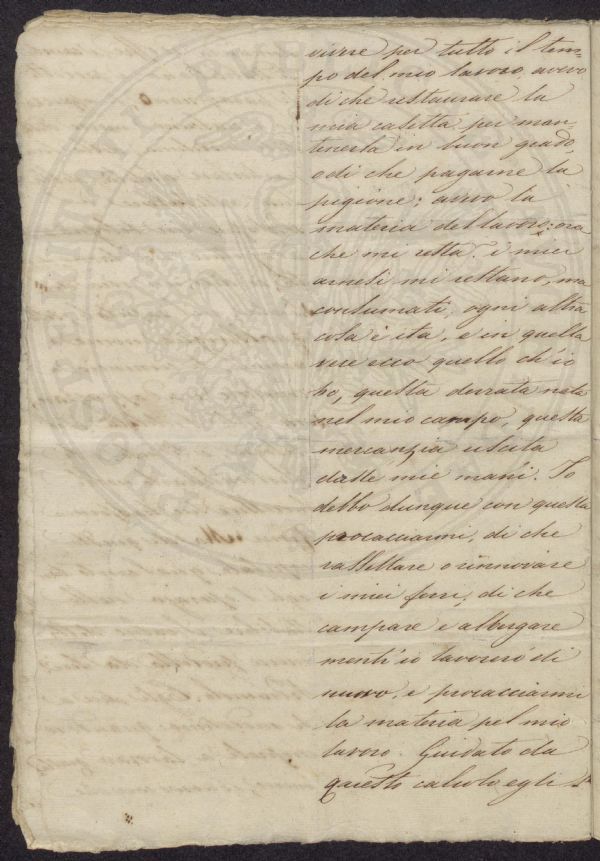 vivere per tutto il tem=
po del mio lavoro, avevo
di che restaurare la
mia casetta, per man-
tenerla in buon grado,
o di che pagarne la
pigione; avevo la
materia del lavoro: ora
che mi resta? i miei
arnesi mi restano, ma
consumati, ogni altra
cosa è ita, e in quella
vece ecco quello ch'io
ho, questa derrata nata
nel mio campo, questa
mercanzia uscita
dalle mie mani. Io
debbo dunque con questa
procacciarmi, di che
rassettare o rinnovare
i miei ferri, di che
campare e albergare
mentr'io lavorerò di
nuovo, e procacciarmi
la materia pel mio
lavoro. Guidato da
questo calcolo egli